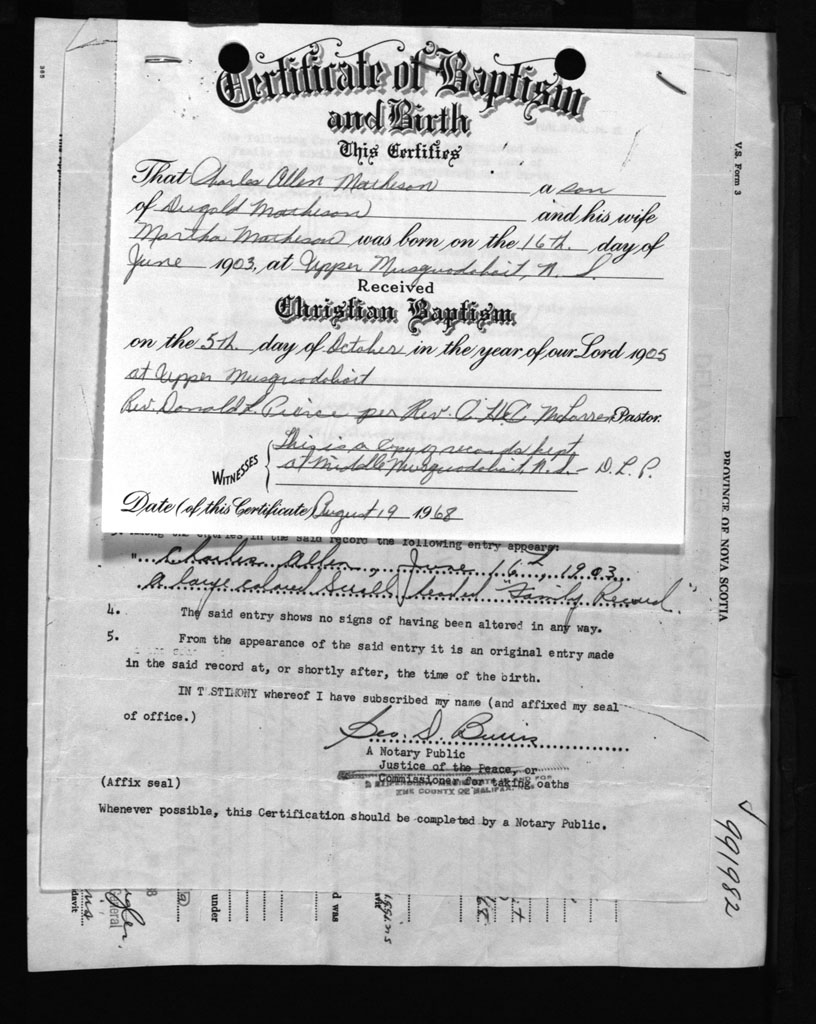 Certificate of Baptism
and Birth
This Certifies
That Charles Allen Matheson a son
of Dugald Matheson and his wife
Martha Matheson was born on the 16th day of
June 1903, at Upper Musquodoboit, N. S.
Received
Christian Baptism
on the 5th day of October in the year of our Lord 1905
at Upper Musquodoboit
Rev. Donald L. Pierce per Rev. McLarren Pastor.
WITNESSES
This is a copy of records kept
at Middle Musquodoboit, N.S. - D. L. P.
Date (of this Certificate) August 19 1968
entries in the said record the following entry appears:
"Charles Allen, June 16th, 1903
a large colored headed "Family Record."
4. The said entry shows no signs of having been altered in any way.
5. From the appearance of the said entry it is an original entry made
in the said record at, or shortly after, the time of the birth.
IN TESTIMONY whereof I have subscribed my name (and affixed my seal
of office.)
Geo. D. Burris
A Notary Public
Justice of the Peace, or
Commissioner for taking oaths
THE COUNTY OF HALIFAX
(Affix seal)
Whenever possible, this Certification should be completed by a Notary Public.
V.S. Form 3
PROVINCE OF NOVA SCOTIA
991982
under
d was